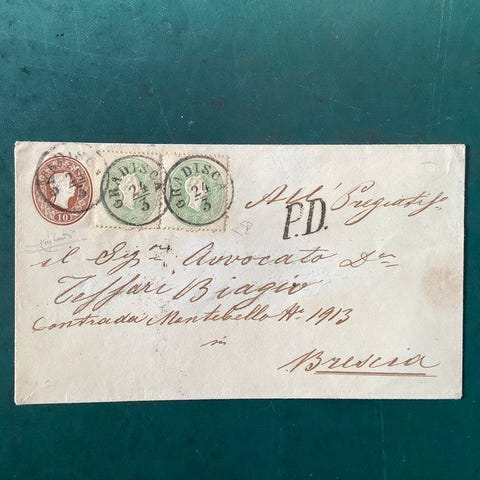 GRADISCA
10
GRADISCA
24
3
GRADISCA
24
3
P.D.
All' Pregiatiss.
il Sigr. Avvocato Dr.
Teffari Biagio
Contrada Montebello No. 1913
in
Brescia